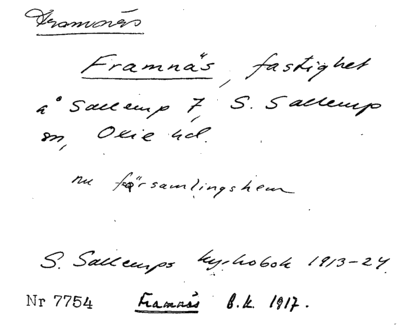 Framnäs
Framnäs, fastighet
å Sallerup 7, S. Sallerup
sn, Oxie hd.
nu församlingshem
S. Sallerups kyrkobok 1913-24.
Nr 7754 Framnäs f.k. 1917.